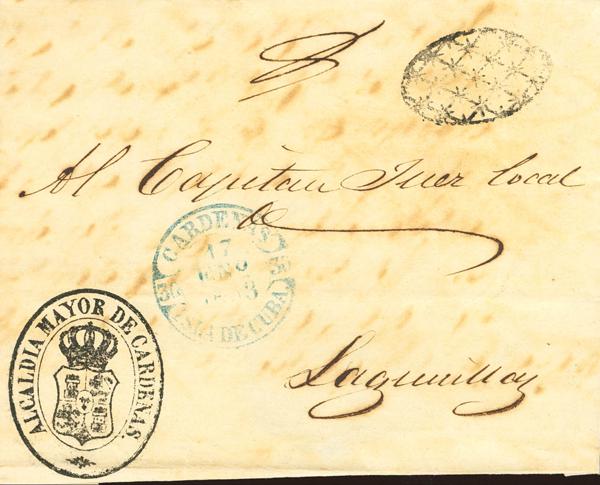 Al Capitan Juez local
de
Lagunillas
CARDENAS
17
ENO
ISLA DE CUBA
ALCALDIA MAYOR DE CARDENAS.